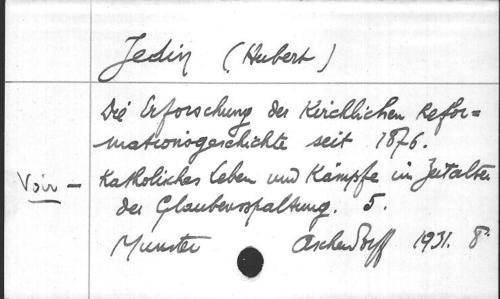 Jedin (Hubert)
Die Erforschung der Kirchlichen Refor=
mationsgeschichte seit 1876.
Voir — Katholisches Leben und Kämpfe im Zeitalter
der Glaubensspaltung. 5.
Munster Aschendorff 1931. 8°.